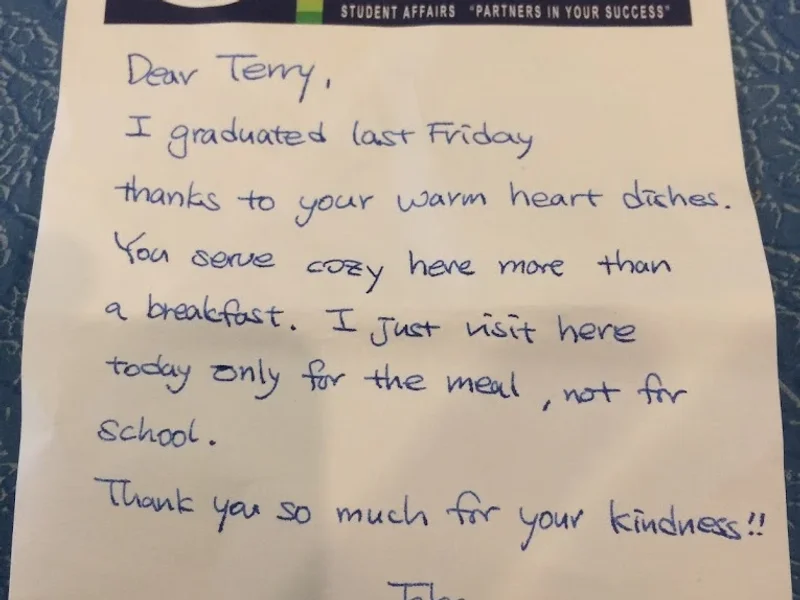 STUDENT AFFAIRS "PARTNERS IN YOUR SUCCESS"
Dear Terry,
I graduated last Friday
thanks to your warm heart dishes.
You serve cozy here more than
a breakfast. I just visit here
today only for the meal, not for
school.
Thank you so much for your kindness!!